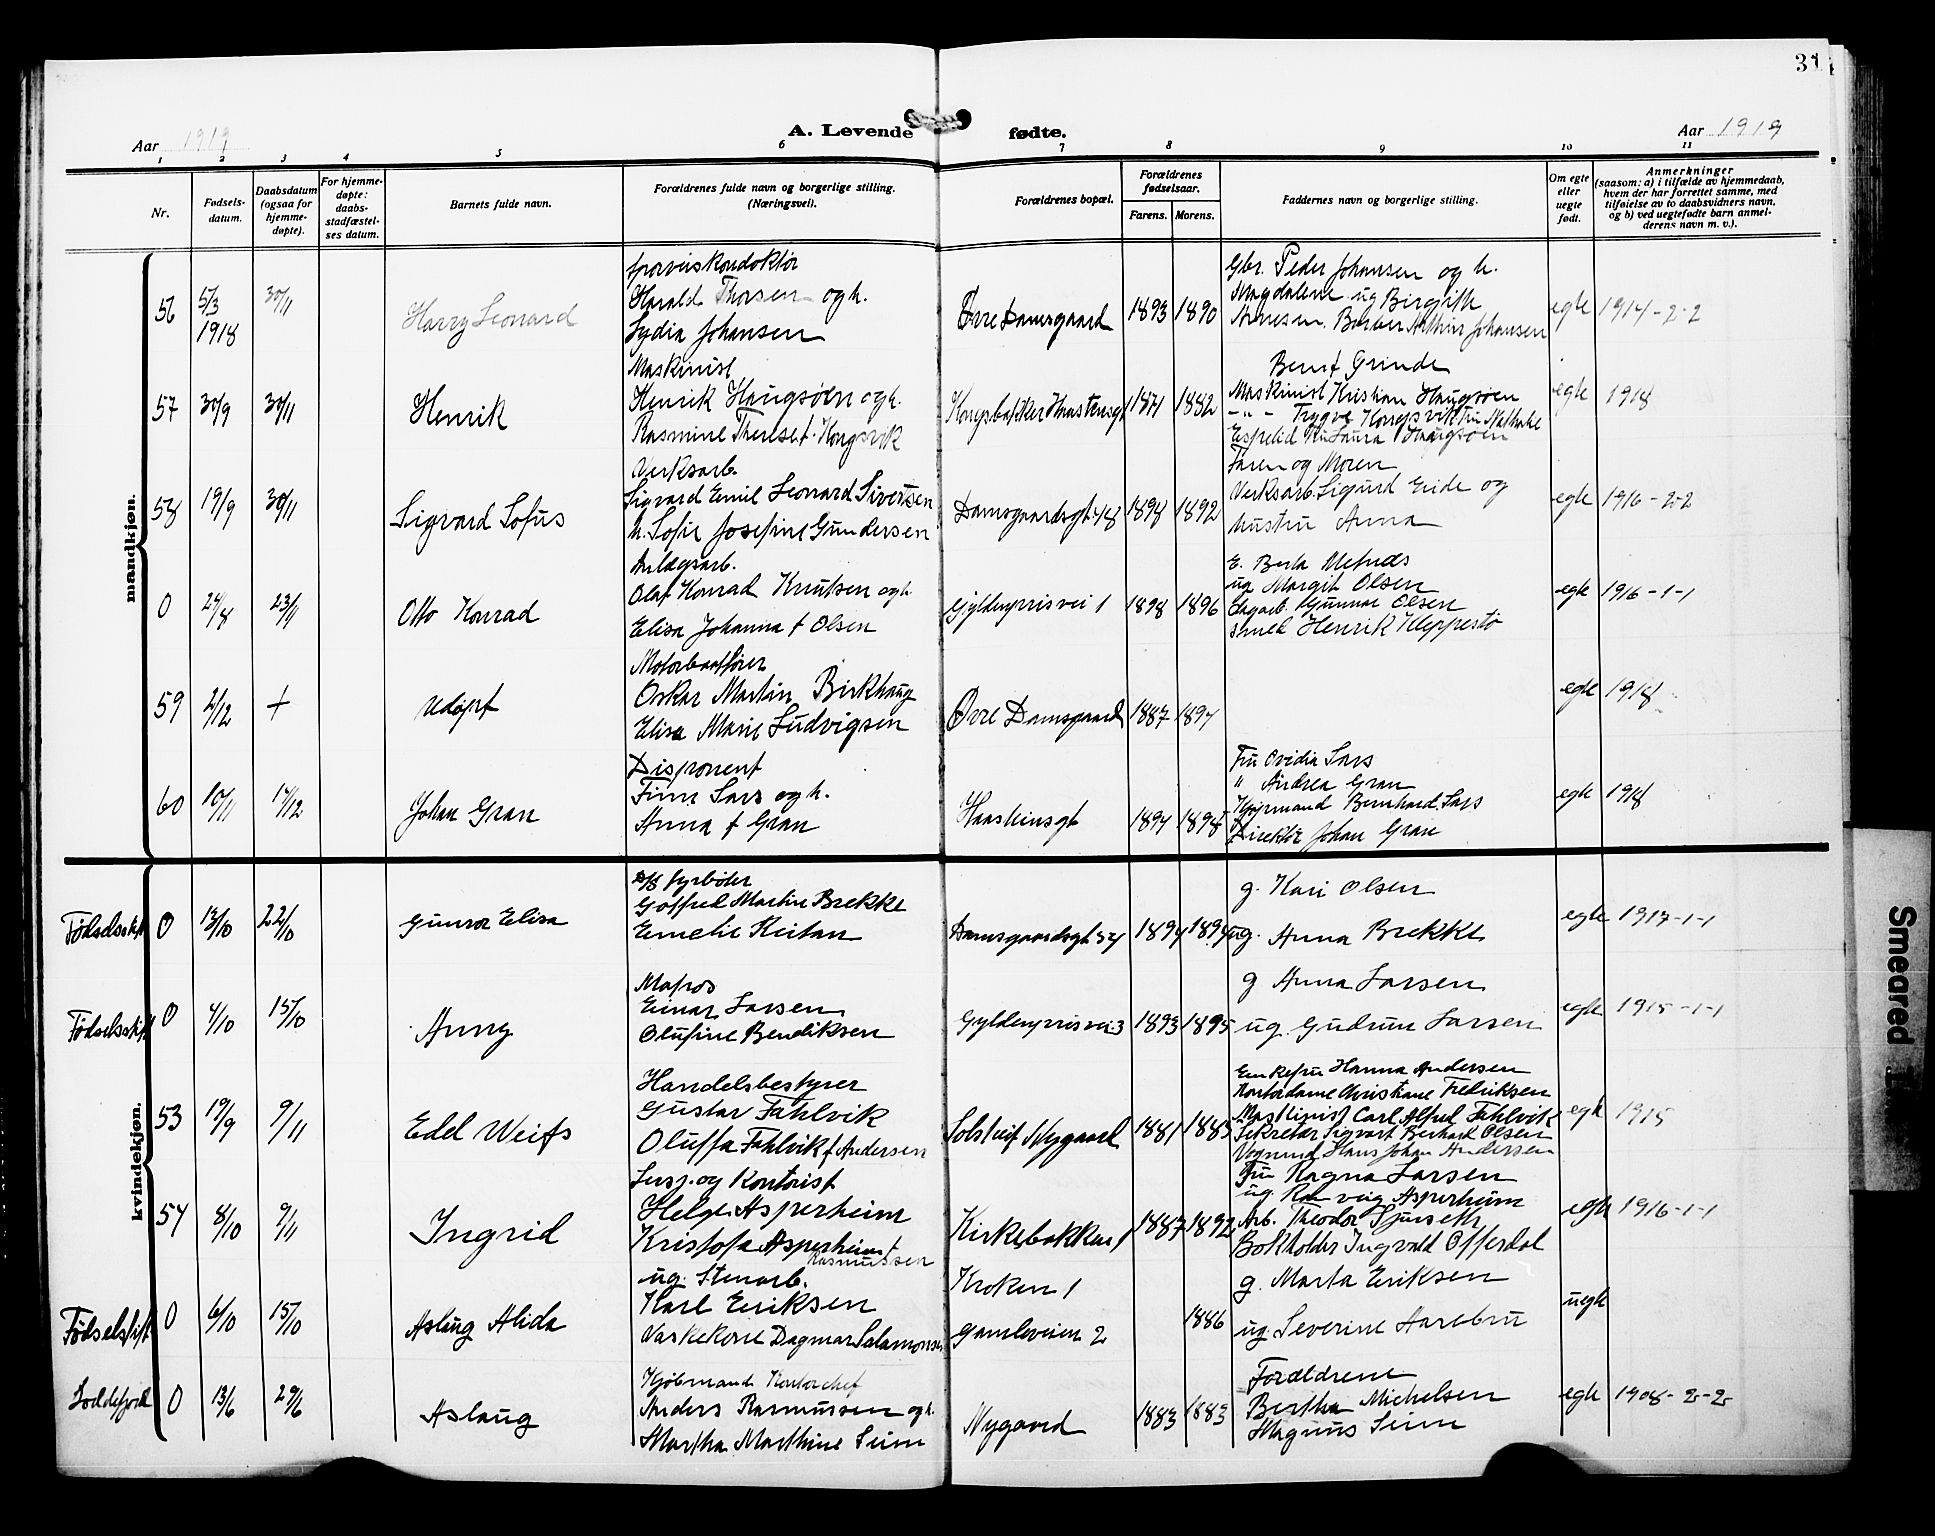 31
Aar 1919
A. Levende fødte.
Aar 1919
1 2 3 4 5 6 7 8 9 10 11
Nr.
Fødsels-
datum.
Daabsdatum
(ogsaa for
hjemme-
døpte).
For hjemme-
døpte:
daabs-
stadfæstel-
ses datum.
Barnets fulde navn.
Forældrenes fulde navn og borgerlige stilling.
(Næringsvei).
Forældrenes bopæl.
Forældrenes
fødselsaar.
Farens. Morens.
Faddernes navn og borgerlige stilling.
Om egte
eller
uegte
født.
Anmerkninger
(saasom: a) i tilfælde av hjemmedaab,
hvem der har forrettet samme, med
tilføielse av to daabsvidners navn,
og b) ved uegtefødte barn anmel-
derens navn m. v.).
mandkjøn.
56
5/3
1918
30/11
Harry Leonard
Sporveiskonduktør
Harald Thorsen og h.
Lydia Johansen
Øvre Damsgaard
1893 1890
Gbr. Peder Johansen og h.
Magdalene ug Birgith
Thoresen. Barber Arthur Johansen
egte
1914-2-2
57
30/9
30/11
Henrik
Maskinist
Henrik Haugsøen og h.
Rasmine Therese f. Kongsvik
1871 1882
Bernt Grinde
Maskinist Kristian Haugsøen
-"- Trygve Kongsvik Fru Nathalie
Espelid Fru Laura Haugsøen
egte
1918
58
19/9
30/11
Sigvard Sofus
Verksarb.
Sigvard Emil Leonard Sivertsen
h. Sofie Josefine Gundersen
Damsgaardsgt 48
1898 1892
Faren og Moren
Verksarb. Sigurd Eide og
hustru Anna
egte
1916-2-2
0
24/8
23/11
Otto Konrad
Anlægsarb.
Olaf Konrad Knutsen og h
Elisa Johanna f Olsen
Gyldenprisvei 1
1898 1896
E. Berta
ug Margit Olsen
Gunnar Olsen
Smed Henrik Kleppestø
egte
1916-1-1
59
2/12
+
Udøpt
Motorbaatfører
Oskar Martin Birkhaug
Elisa Marie Ludvigsen
Øvre Damsgaard
1887 1894
egte
1918
60
10/11
14/12
Johan Gran
Disponent
Finn Sars og h.
Anna f Gran
Haasteinsgt
1894 1898
Fru Ovidia Sars
" Andrea Gran
Kjøpmand Bernhard Sars
Direktør Johan Gran
egte
1918
kvindekjøn.
Fødselsstift
0
13/10
22/10
Gunvor Elisa
D/S fyrbøter
Gotfred Martin Brekke
Emelie Reitan
Damsgaardsgt 54
1894 1894
g. Kari Olsen
ug. Anna Brekke
egte
1917-1-1
Fødselsstift
0
4/10
15/10
Anny
Matros
Einar Larsen
Olufine Bendiksen
Gyldenprisvei 3
1893 1895
g Anna Larsen
ug. Gudrun Larsen
egte
1915-1-1
53
19/9
9/11
Edel Weiss
Handelsbestyrer
Gustav Fahlvik
Oluffa Fahlvik f Andersen
Solstreif Nygaard
1881 1885
Enkefru Hanna Andersen
Kontordame Christiane Fredriksen
Maskinist Carl Alfred Fahlvik
Sekretær Sigvart Berhard Olsen
Vognmd Hans Johan Andersen
egte
1915
54
8/10
9/11
Ingrid
Insp. og Kontorist
Helge Asperheim
Kristofa Asperheim f
Rasmussen
Kirkebakken 1
1887 1892
Fru Ragna Larsen
ug. Ranveig Asperheim
Arb. Theodor Sjurseth
Bokholder Ingvald Offerdal
egte
1916-1-1
Fødselsstift
0
6/10
15/10
Aslaug Alida
ug. Stenarb.
Karl Eriksen
Vaskekone Dagmar Salamonsen
Kroken 1
Gamleveien 2
1886
g. Marta Eriksen
ug. Severine Aarebru
uegte
Loddefjord
0
13/6
29/6
Aslaug
Kjøbmand Kontorchef
Anders Rasmussen og h.
Martha Marthine Seim
Nygaard
1883 1883
Forældrene
Bertha Michelsen
Magnus Seim
egte
1908-2-2
Smeared